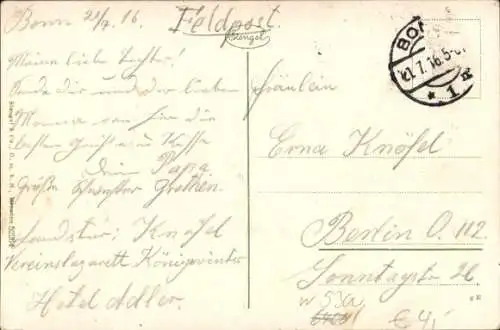 Bonn 21/7. 16.
Feldpost
Stengel
Meine liebe Tochter!
Sende dir und der lieben
Mamma von hier die
besten Grüße u Küsse
Dein Papa
Grüße Schwester Grethen.
Landstur: Knöfel
Vereinslazarett Königswinter
Hotel Adler.
BON
21.7.16.5-6
* 1 R
Fräulein
Erna Knöfel
Berlin O. 112
Sonntagstr 26